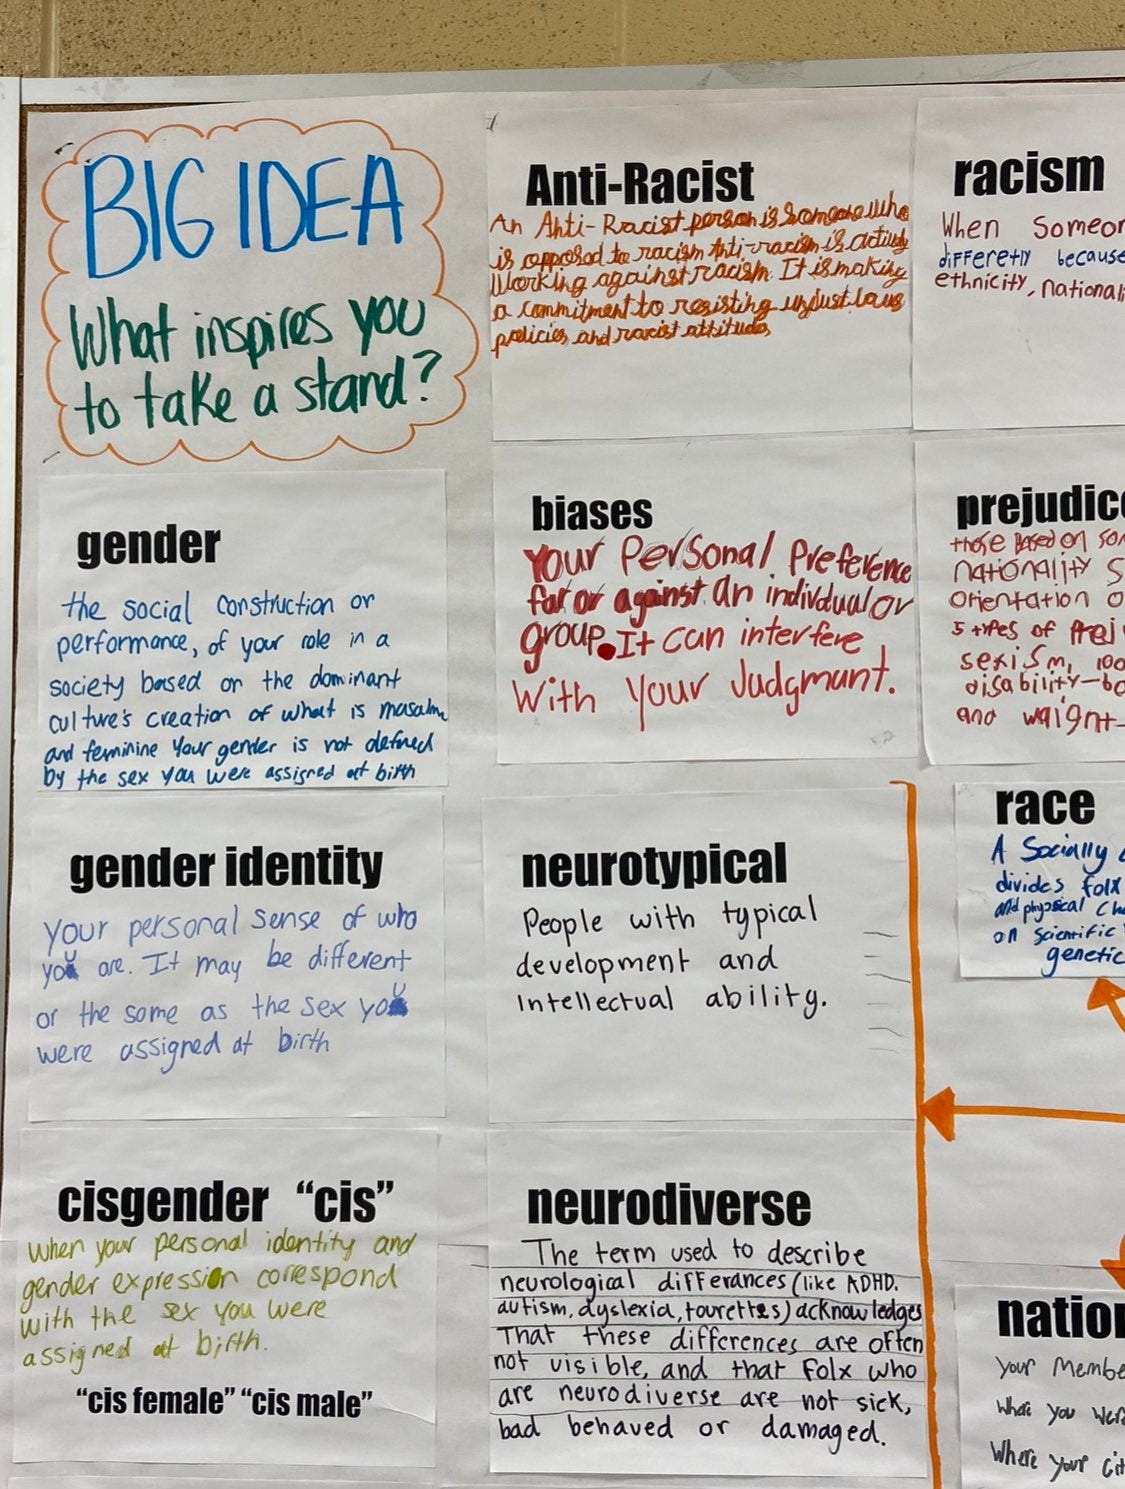 BIG IDEA
What inspires you
to take a stand?
Anti-Racist
An Anti-Racist person is someone who
is opposed to racism Anti-racism is actively
working against racism. It is making
a commitment to resisting unjust laws
policies and racist attitudes
racism
When Someon
differetly because
ethnicity, nationali
gender
the social construction or
performance, of your role in a
society based on the dominant
culture's creation of what is masculine
and feminine Your gender is not defined
by the sex you were assigned at birth
biases
Your Personal Preference
for or against an individual or
group. It can interfere
With Your Judgmant.
prejudice
those Based on so
nationality S
orientation o
5 types of Prej
sexism,
disability-bo
and waignt-
gender identity
Your personal sense of who
you are. It may be different
or the same as the sex you
were assigned at birth
neurotypical
People with typical
development and
Intellectual ability.
race
A Socially
divides folx
and physical Cha
on scientific
genetic
cisgender "cis"
When your personal identity and
gender expression correspond
with the sex you were
assigned at birth.
"cis female" "cis male"
neurodiverse
The term used to describe
neurological differances (like ADHD.
autism, dyslexia, tourettes) acknowledges
That these differences are often
not visible, and that Folx who
are neurodiverse are not sick,
bad behaved or damaged.
nation
Your Membe
Where you wer
Where your cit